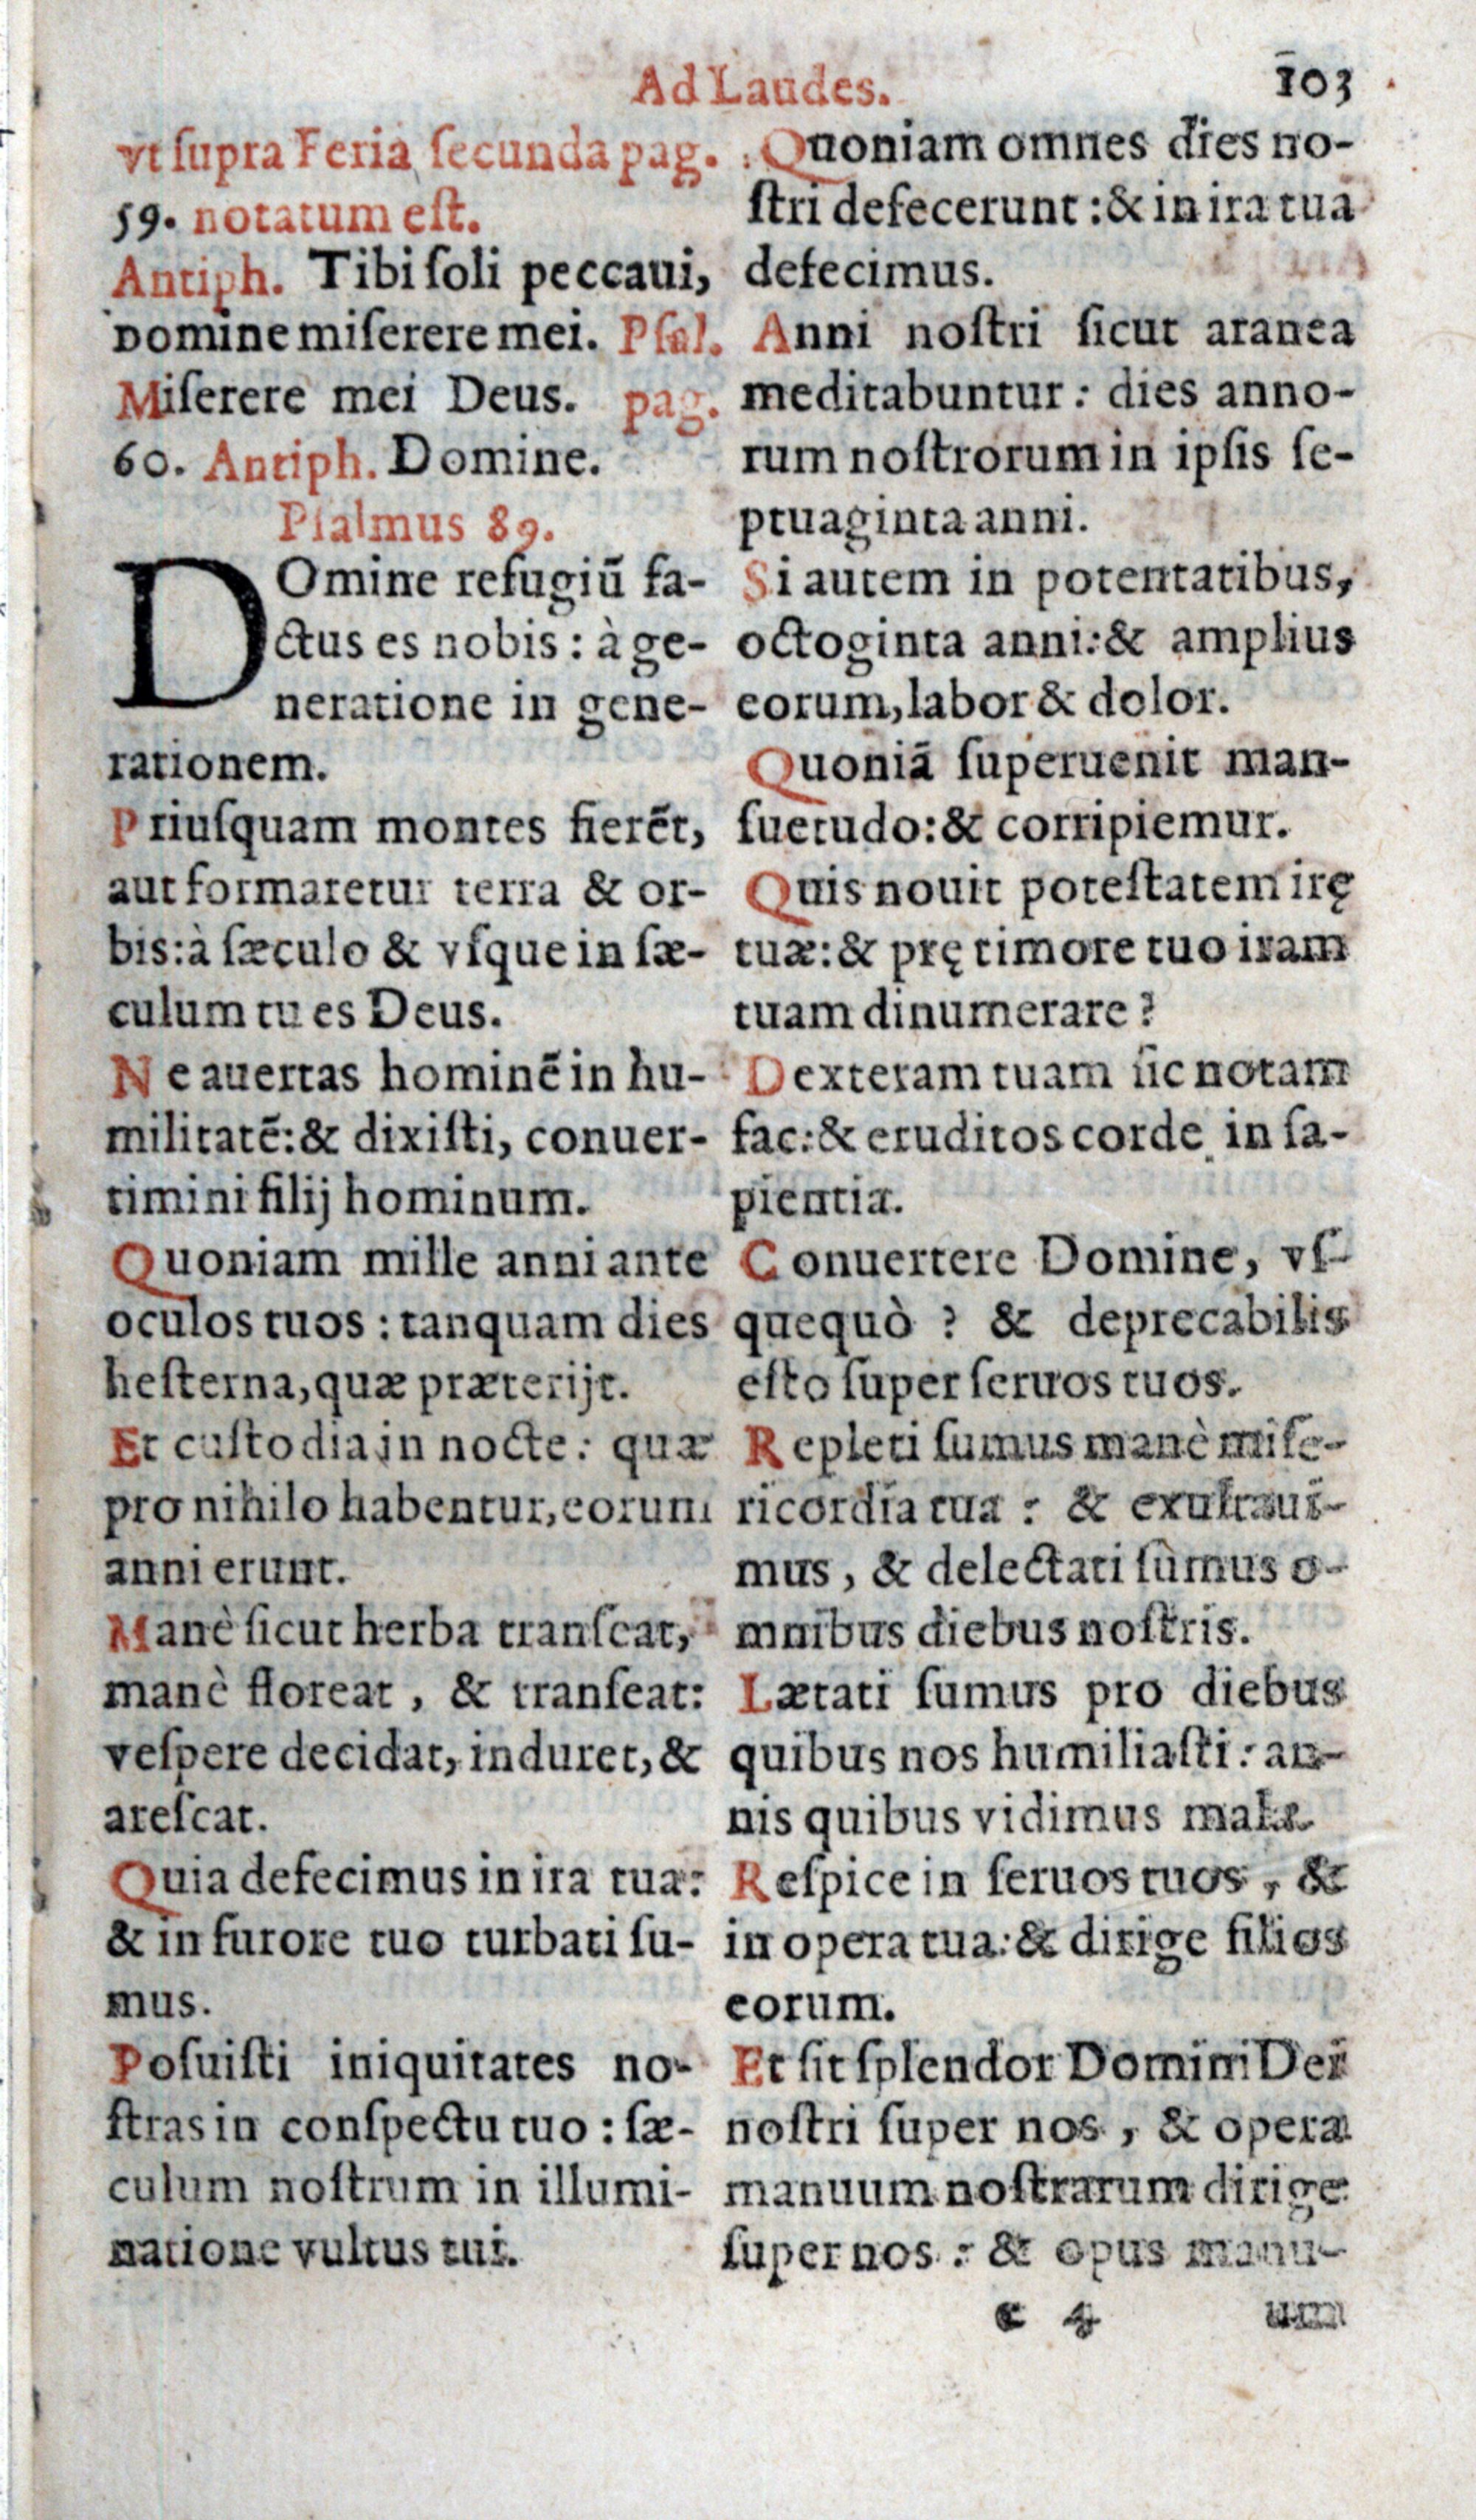 Ad Laudes.
103
vt ſupra Feria ſecunda pag.
59. notatum eſt.
Antiph. Tibi ſoli peccaui,
Domine miſerere mei. Pſal.
Miſerere mei Deus. pag.
60. Antiph. Domine.
Pſalmus 89.
DOmine refugiū fa-
ctus es nobis : à ge-
neratione in gene-
rationem.
Priuſquam montes fierēt,
aut formaretur terra & or-
bis: à ſæculo & vſque in ſæ-
culum tu es Deus.
Ne auertas hominē in hu-
militatē: & dixiſti, conuer-
timini filij hominum.
Quoniam mille anni ante
oculos tuos : tanquam dies
heſterna, quæ præterijt.
Et cuſtodia in nocte : quæ
pro nihilo habentur, eorum
anni erunt.
Manè ſicut herba tranſeat,
manè floreat , & tranſeat:
veſpere decidat, induret, &
areſcat.
Quia defecimus in ira tua:
& in furore tuo turbati ſu-
mus.
Poſuiſti iniquitates no-
ſtras in conſpectu tuo : ſæ-
culum noſtrum in illumi-
natione vultus tui.
Quoniam omnes dies no-
ſtri defecerunt : & in ira tua
defecimus.
Anni noſtri ſicut aranea
meditabuntur : dies anno-
rum noſtrorum in ipſis ſe-
ptuaginta anni.
Si autem in potentatibus,
octoginta anni: & amplius
eorum, labor & dolor.
Quoniā ſuperuenit man-
ſuetudo: & corripiemur.
Quis nouit poteſtatem irę
tuæ: & prę timore tuo iram
tuam dinumerare ?
Dexteram tuam ſic notam
fac: & eruditos corde in ſa-
pientia.
Conuertere Domine, vſ-
quequò ? & deprecabilis
eſto ſuper ſeruos tuos.
Repleti ſumus manè miſe-
ricordia tua : & exultaui-
mus , & delectati ſumus o-
mnibus diebus noſtris.
Lætati ſumus pro diebus
quibus nos humiliaſti : an-
nis quibus vidimus mala.
Reſpice in ſeruos tuos , &
in opera tua: & dirige filios
eorum.
Et ſit ſplendor Domini Dei
noſtri ſuper nos , & opera
manuum noſtrarum dirige
ſuper nos : & opus manu-
c 4
uum